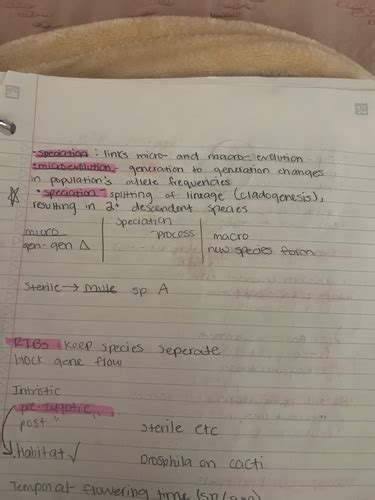 • speciation : links micro- and macro- evolution
• microevolution- generation to generation changes
in population's allele frequencies
☆ • speciation- splitting of lineage (cladogenesis),
resulting in 2+ descendent species
micro | speciation | macro
gen-gen Δ | process | new species form
sterile → mule sp A
RIBs keep species seperate
block gene flow
Intristic
pre-zygotic
post " sterile etc
Habitat ✓ Drosphila on cacti
Temporal- flowering time